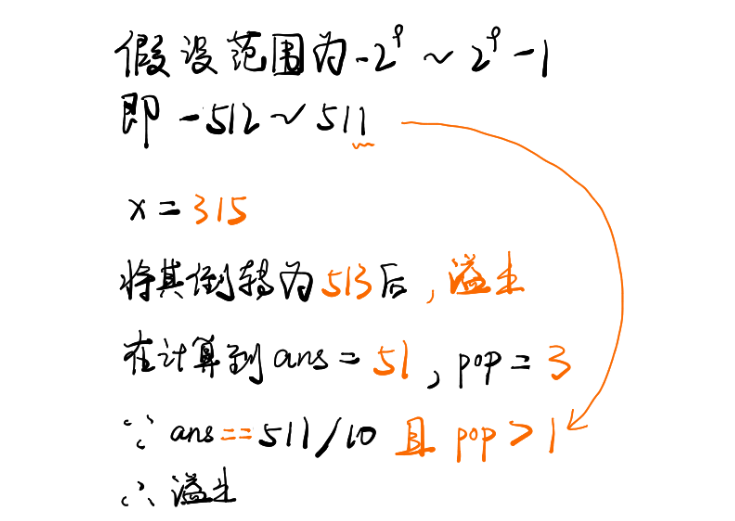 假设范围为-2⁹~2⁹-1
即 -512~511
x=315
将其倒转为513后，溢出
在计算到ans=51，pop=3
∵ ans==511/10 且 pop>1
∴ 溢出